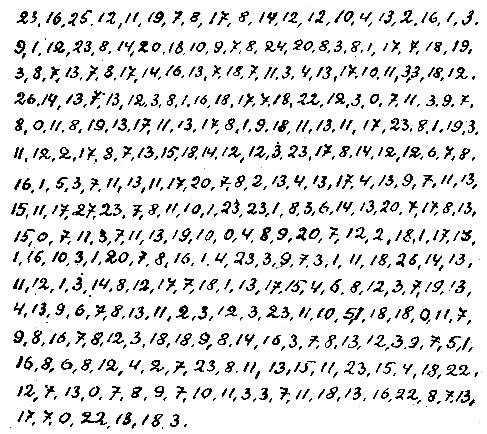 23, 16, 25, 12, 11, 19, 7, 8, 17, 8, 14, 12, 12, 10, 4, 13, 2, 16, 1, 3.
9, 1, 12, 23, 8, 14, 20, 18, 10, 9, 7, 8, 24, 20, 8, 3, 8, 1, 17, 7, 18, 19,
3, 8, 7, 13, 7, 8, 17, 14, 16, 13, 7, 18, 7, 11, 3, 4, 13, 17, 10, 11, 33, 18, 12.
26, 14, 13, 7, 13, 12, 3, 8, 1, 16, 18, 17, 7, 18, 22, 12, 3, 0, 7, 11. 3, 9, 7,
8, 0, 11, 8, 19, 13, 17, 11, 13, 17, 8, 1, 9, 18, 11, 13, 11, 17, 23, 8, 1, 19, 3
11, 12, 2, 17, 8, 7, 13, 15, 18, 14, 12, 12, 3, 23, 17, 8, 14, 12, 12, 6, 7, 8.
16, 1, 5, 3, 7, 11, 13, 11, 17, 20, 7, 8, 2, 13, 4, 13, 17, 4, 13, 9, 7, 11, 13,
15, 11, 17, 27, 23, 7, 8, 11, 10, 1, 23, 23, 1, 8, 3, 6, 14, 13, 20, 7, 17, 8, 13,
15, 0, 7, 11, 3, 7, 11, 13, 19, 10, 0, 4, 8, 9, 20, 7, 12, 2, 18, 1, 17, 18.
1, 16, 10, 3, 1, 20, 7, 8, 16, 1, 4, 23, 3, 9, 7, 3, 1, 11, 18, 26, 14, 13,
11, 12, 1, 3, 14, 8, 12, 17, 7, 18, 1, 13, 17, 15, 4, 6, 8, 12, 3, 7, 19, 13,
4, 13, 9, 6, 7, 8, 13, 11, 2, 3, 12, 3, 23, 11, 10, 51, 18, 18, 0, 11, 7,
9, 8, 16, 7, 8, 12, 3, 18, 18, 9, 8, 14, 16, 3, 7, 8, 13, 12, 3, 9, 7, 5, 1,
16, 8, 6, 8, 12, 4, 2, 7, 23, 8, 11, 13, 15, 11, 23, 15, 4, 18, 22,
12, 7, 13, 0, 7, 8, 9, 7, 10, 11, 3, 3, 7, 11, 18, 13, 16, 22, 8, 7, 13,
17, 7, 0, 22, 13, 18, 3.